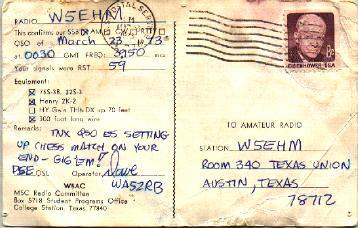 RADIO W5EHM
POSTAL SERV
This confirms our SSB AM C
QSO of March 23, 1973
at 0030 GMT FREQ: 3950
Your signals were RST 59
EISENHOWER · USA
8c
Equipment:
75S-3B, 32S-3
Henry 2K-2
HY Gain TH6 DX up 70 feet
300 foot long wire
Remarks: TNX QSO ES SETTING
UP CHESS MATCH ON YOUR
END - GIG'EM!
PSE QSL Operator Dave
WA5ZRB
W5AC
MSC Radio Committee
Box 5718 Student Programs Office
College Station, Texas 77840
TO AMATEUR RADIO
STATION W5EHM
ROOM 340 TEXAS UNION
AUSTIN, TEXAS
78712